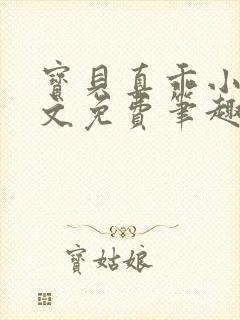 寶見真乖小
文免費筆趣
寶姑娘